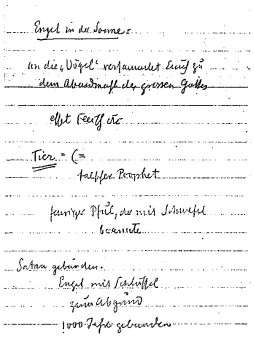 Engel in der Sonne:
an die "Vögel" versammelet Euch zu
dem Abendmahl des grossen Gottes
esset Fleisch etc
Tier = (=
falscher Prophet
feuriger Pfuhl, der mit Schwefel
brannte
Satan gebunden.
Engel mit Schlüssel
zum Abgrund
1000 Jahr gebunden